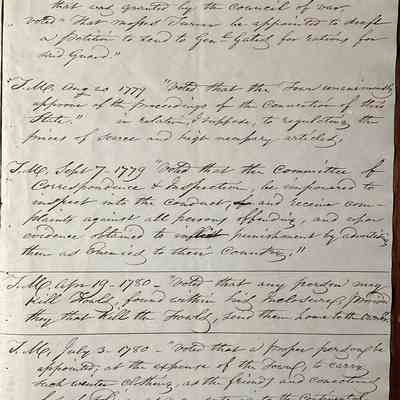 that was granted by the Council of war.
voted "that Moses Turner be appointed to draft
a Petition to send to Genl. Gates for rations for
said Guard."
"T.M. Aug 20 1779 "Voted that the Town unanimously
approve of the proceedings of the Convention of this
State." in relation, I suppose, to regulating the
prices of scarce and high necessary articles,
T.M. Sept 7 - 1779 "Voted that the Committee of
Correspondence & Inspection, be impowered to
inspect into the Conduct, and receive com-
plaints against all persons offending, and upon
evidence obtained to inflict punishment by advertising
them as Enemies to their Country."
T.M. Apr 19 - 1780 - "Voted that any person may
kill Fowls, found within his inclosure, provided
they that kill the Fowls, send them home to the owner
T.M. July 3 - 1780 - "Voted that a proper person be
appointed, at the expense of the Town, to carry
such winter clothing, as the friends and